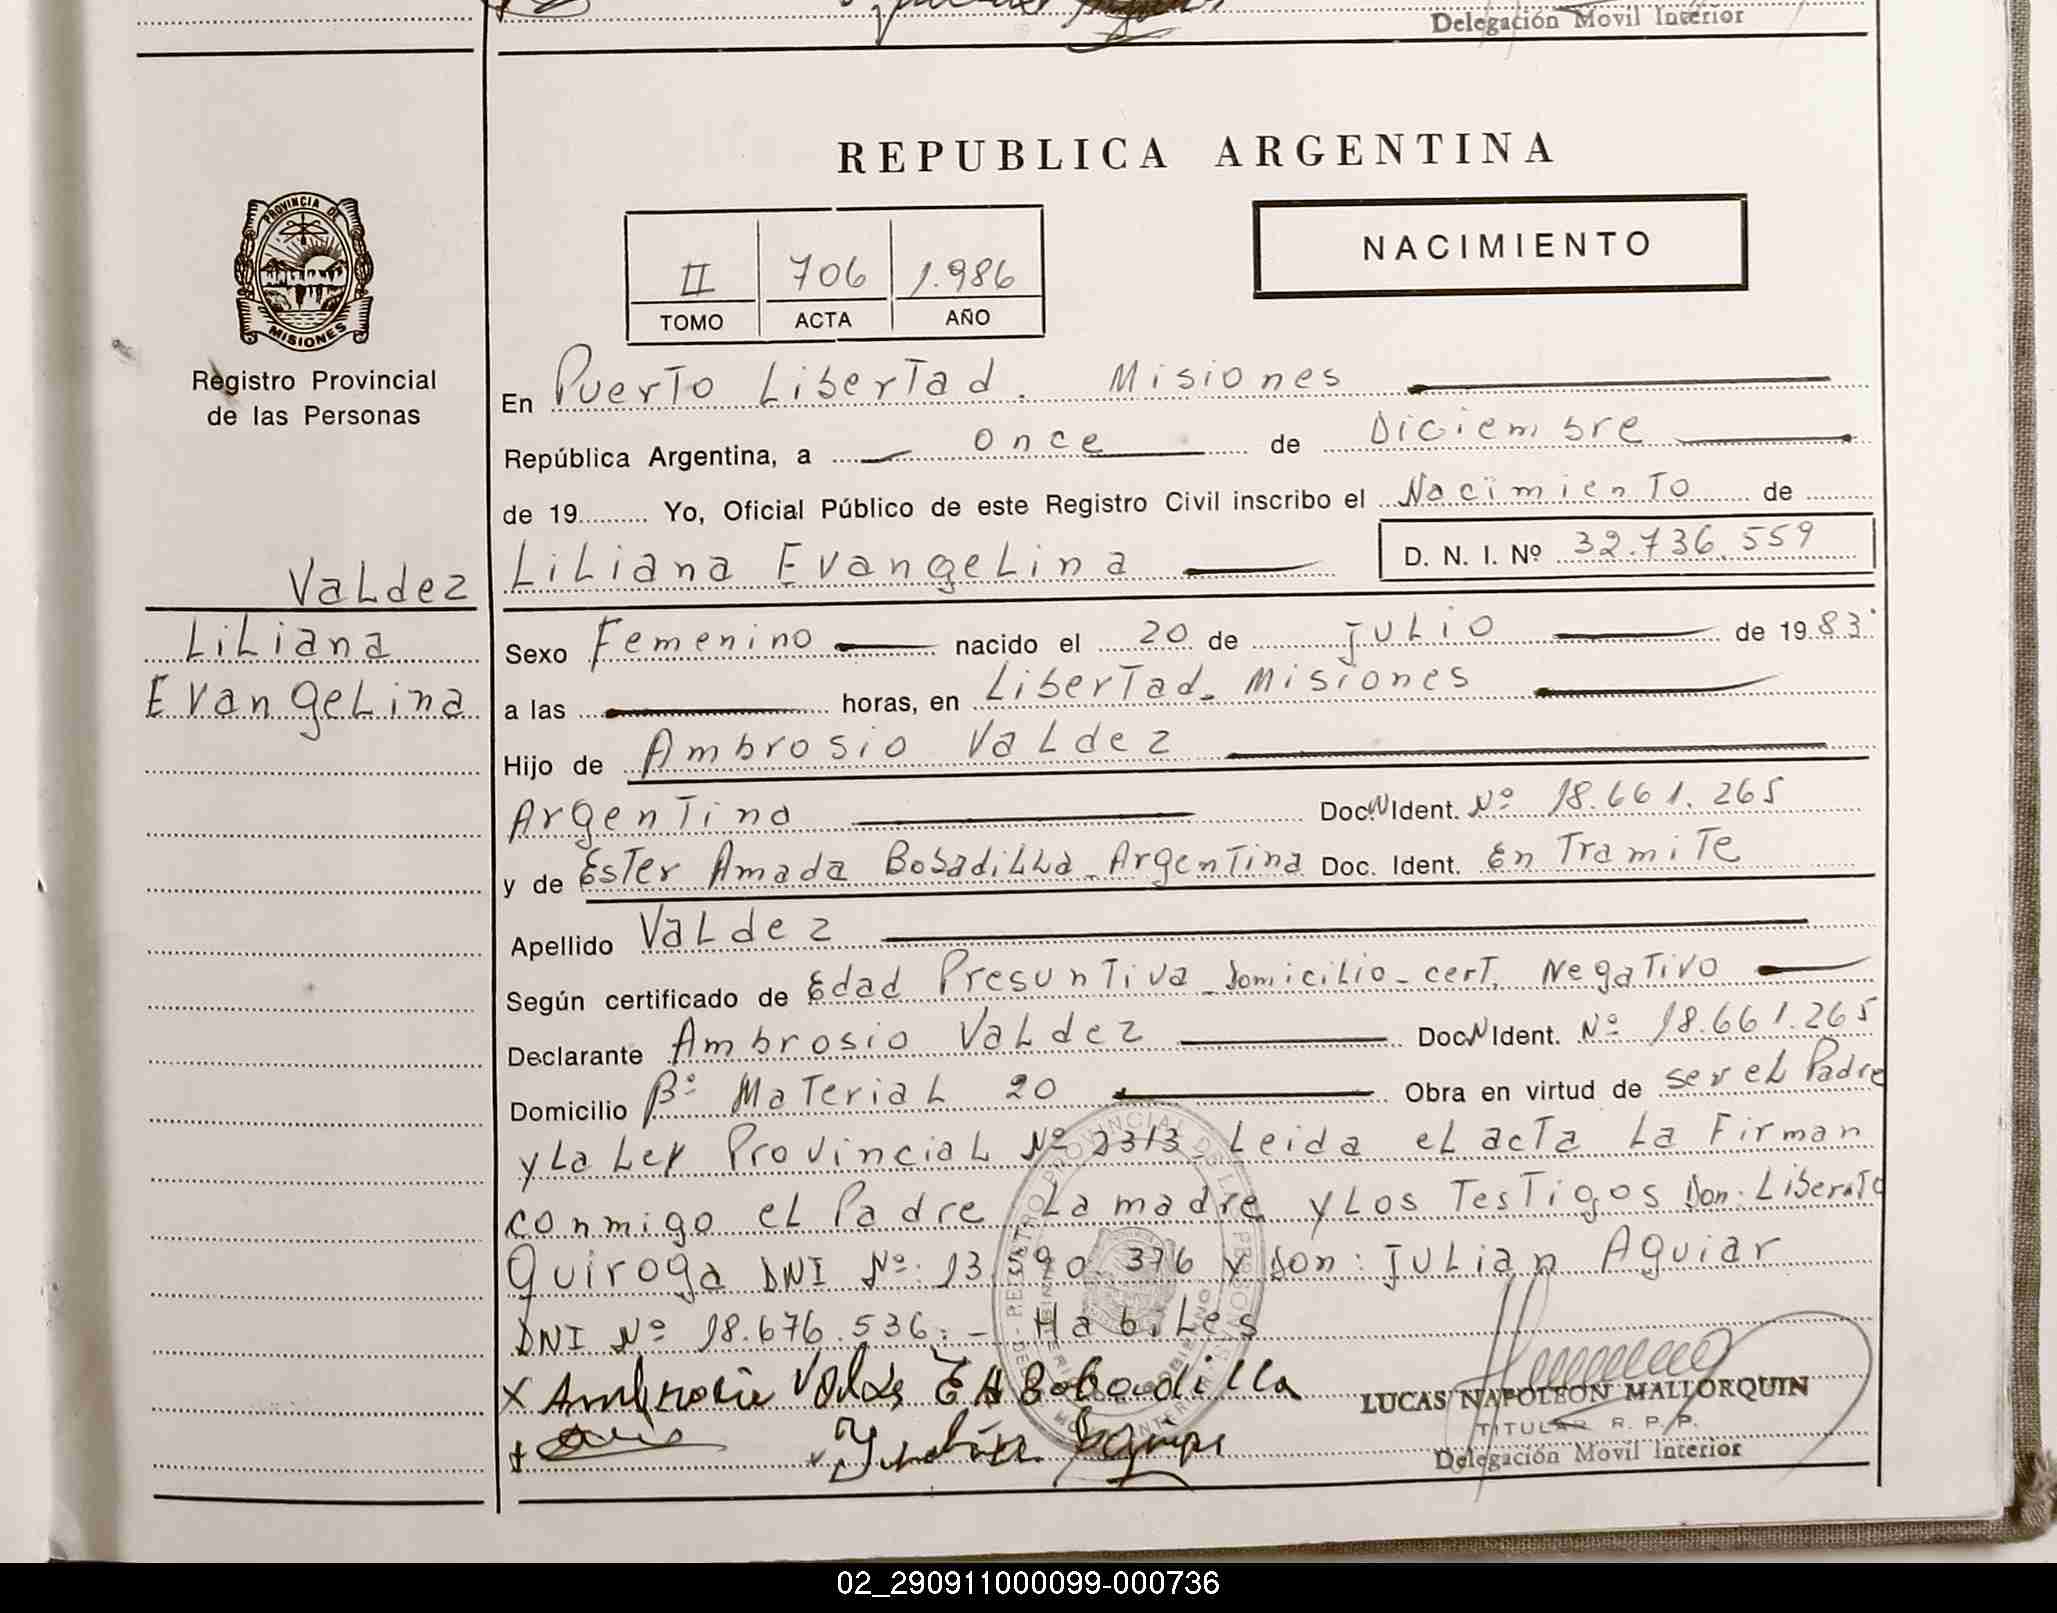 Delegación Movil Interior
REPUBLICA ARGENTINA
PROVINCIA DE
MISIONES
Registro Provincial
de las Personas
II 706 1.986
TOMO ACTA AÑO
NACIMIENTO
En Puerto Libertad. Misiones
República Argentina, a once de Diciembre
de 19 Yo, Oficial Público de este Registro Civil inscribo el Nacimiento de
Valdez
Liliana
Evangelina
Liliana Evangelina D. N. I. Nº 32.736.559
Sexo Femenino nacido el 20 de julio de 1983
a las horas, en Libertad. Misiones
Hijo de Ambrosio Valdez
Argentina Doc. N Ident. Nº 18.661.265
y de Ester Amada Bobadilla. Argentina Doc. Ident. En Tramite
Apellido Valdez
Según certificado de Edad Presuntiva - Domicilio - cert. Negativo
Declarante Ambrosio Valdez Doc. N Ident. Nº 18.661.265
Domicilio Bº Material 20 Obra en virtud de ser el Padre
y La Ley Provincial Nº 2313. Leida el acta La Firman
conmigo el Padre, La madre y Los Testigos Don: Liberato
Quiroga DNI Nº: 13.590.376 y Don: Julian Aguiar
DNI Nº 18.676.536. - Habiles
x Ambrosio Valdez E A Bobadilla
LUCAS NAPOLEON MALLORQUIN
TITULAR R. P. P.
Delegación Movil Interior
02_290911000099-000736